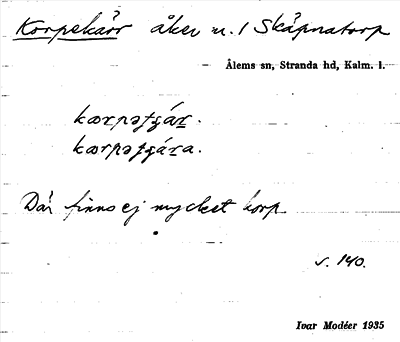 Korpekärr åker n. 1 Skäpnatorp
Ålems sn, Stranda hd, Kalm. l.
kɷrpəʈʂár.
kɷrpəʈʂára.
Där finns ej mycket korp
s. 140.
Ivar Modéer 1935